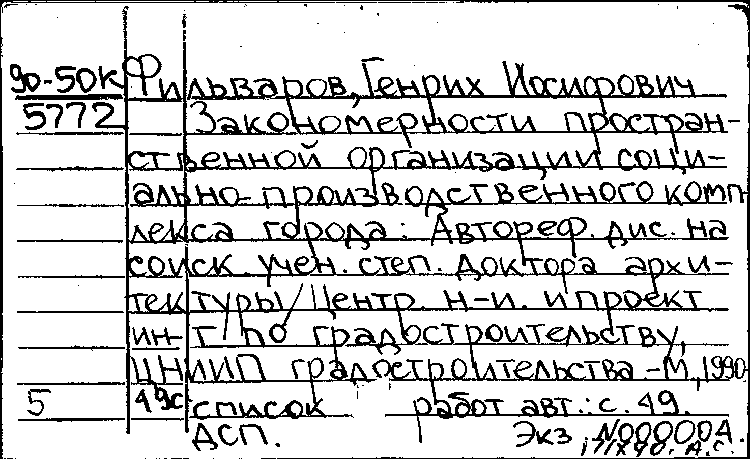 90-50К Фильваров, Генрих Иосифович
5772 Закономерности простран-
ственной организации соци-
ально-производственного комп-
лекса города: Автореф. дис. на
соиск. учен. степ. доктора архи-
тектуры / Центр. н-и. и проект
ин-т по градостроительству,
ЦНИИП градостроительства -М, 1990-
5 49с список работ авт.: с. 49.
ДСП. Экз N000004.